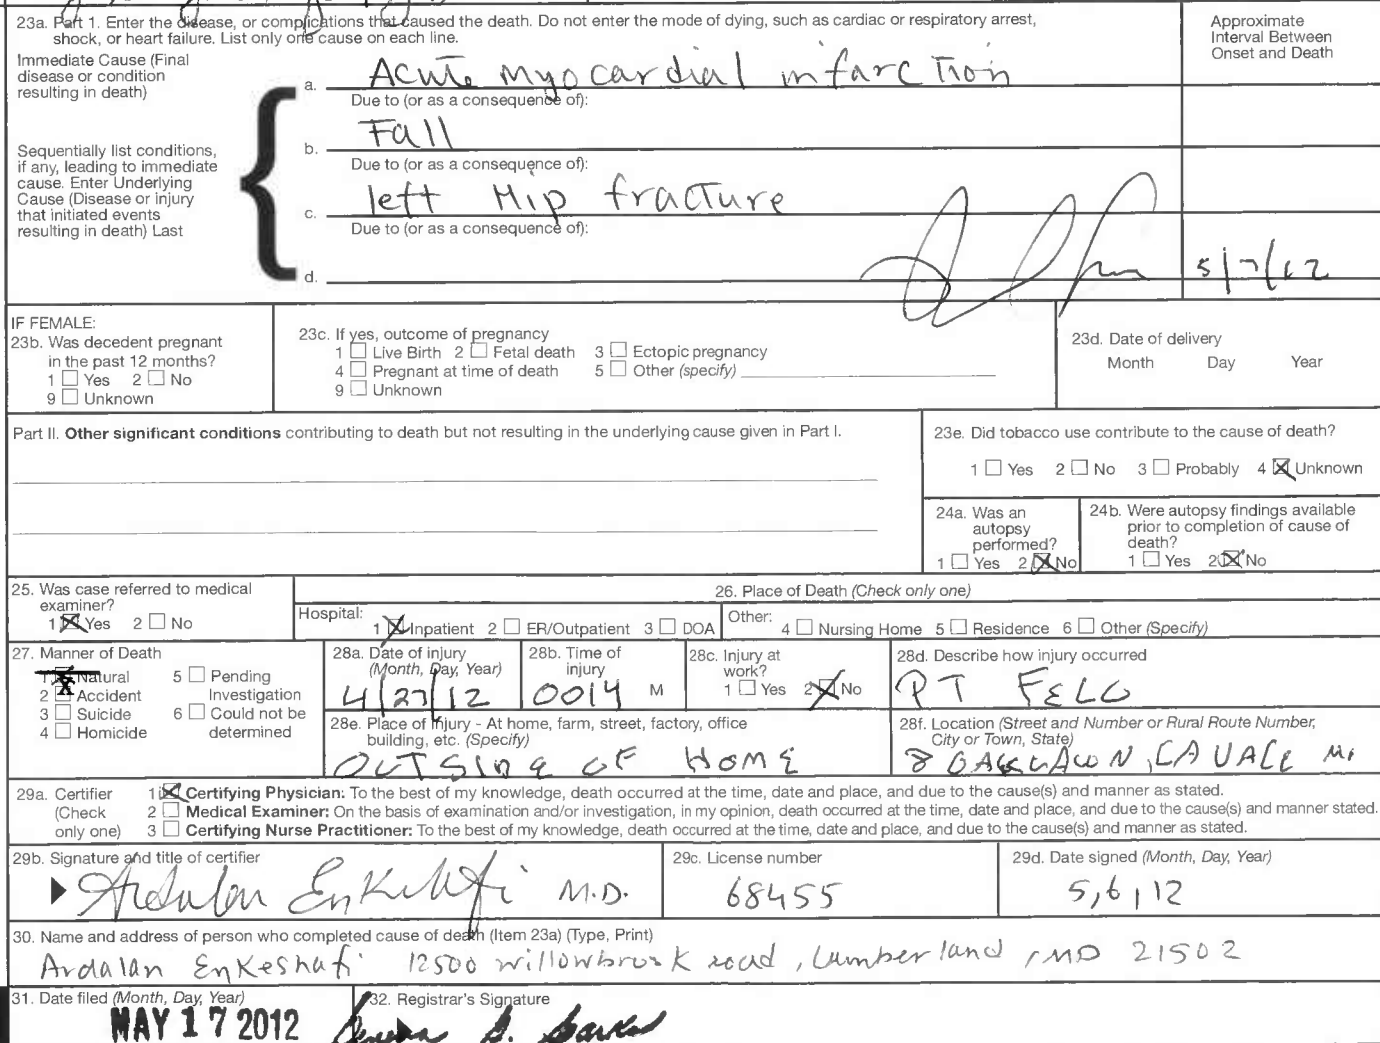 23a. Part 1. Enter the disease, or complications that caused the death. Do not enter the mode of dying, such as cardiac or respiratory arrest,
shock, or heart failure. List only one cause on each line.
Approximate
Interval Between
Onset and Death
Immediate Cause (Final
disease or condition
resulting in death)
a. Acute myocardial infarction
Due to (or as a consequence of):
Sequentially list conditions,
if any, leading to immediate
cause. Enter Underlying
Cause (Disease or injury
that initiated events
resulting in death) Last
b. Fall
Due to (or as a consequence of):
c. left Hip fracture
Due to (or as a consequence of):
d.
5/7/12
IF FEMALE:
23b. Was decedent pregnant
in the past 12 months?
1 Yes 2 No
9 Unknown
23c. If yes, outcome of pregnancy
1 Live Birth 2 Fetal death 3 Ectopic pregnancy
4 Pregnant at time of death 5 Other (specify)
9 Unknown
23d. Date of delivery
Month Day Year
Part II. Other significant conditions contributing to death but not resulting in the underlying cause given in Part I.
23e. Did tobacco use contribute to the cause of death?
1 Yes 2 No 3 Probably 4 Unknown
24a. Was an
autopsy
performed?
1 Yes 2 No
24b. Were autopsy findings available
prior to completion of cause of
death?
1 Yes 2 No
25. Was case referred to medical
examiner?
1 Yes 2 No
26. Place of Death (Check only one)
Hospital: 1 Inpatient 2 ER/Outpatient 3 DOA
Other: 4 Nursing Home 5 Residence 6 Other (Specify)
27. Manner of Death
1 Natural 5 Pending
2 Accident Investigation
3 Suicide 6 Could not be
4 Homicide determined
28a. Date of injury
(Month, Day, Year)
4/27/12
28b. Time of
injury
0014 M
28c. Injury at
work?
1 Yes 2 No
28d. Describe how injury occurred
PT FELL
28e. Place of Injury - At home, farm, street, factory, office
building, etc. (Specify)
OUTSIDE OF HOME
28f. Location (Street and Number or Rural Route Number,
City or Town, State)
8 OAKLAWN, LAVALE
29a. Certifier
(Check
only one)
1 Certifying Physician: To the best of my knowledge, death occurred at the time, date and place, and due to the cause(s) and manner as stated.
2 Medical Examiner: On the basis of examination and/or investigation, in my opinion, death occurred at the time, date and place, and due to the cause(s) and manner stated.
3 Certifying Nurse Practitioner: To the best of my knowledge, death occurred at the time, date and place, and due to the cause(s) and manner as stated.
29b. Signature and title of certifier
Ardalan Enkeshafi M.D.
29c. License number
68455
29d. Date signed (Month, Day, Year)
5,6,12
30. Name and address of person who completed cause of death (Item 23a) (Type, Print)
Ardalan Enkeshafi 12500 willowbrook road, Cumberland, MD 21502
31. Date filed (Month, Day, Year)
MAY 17 2012
32. Registrar's Signature